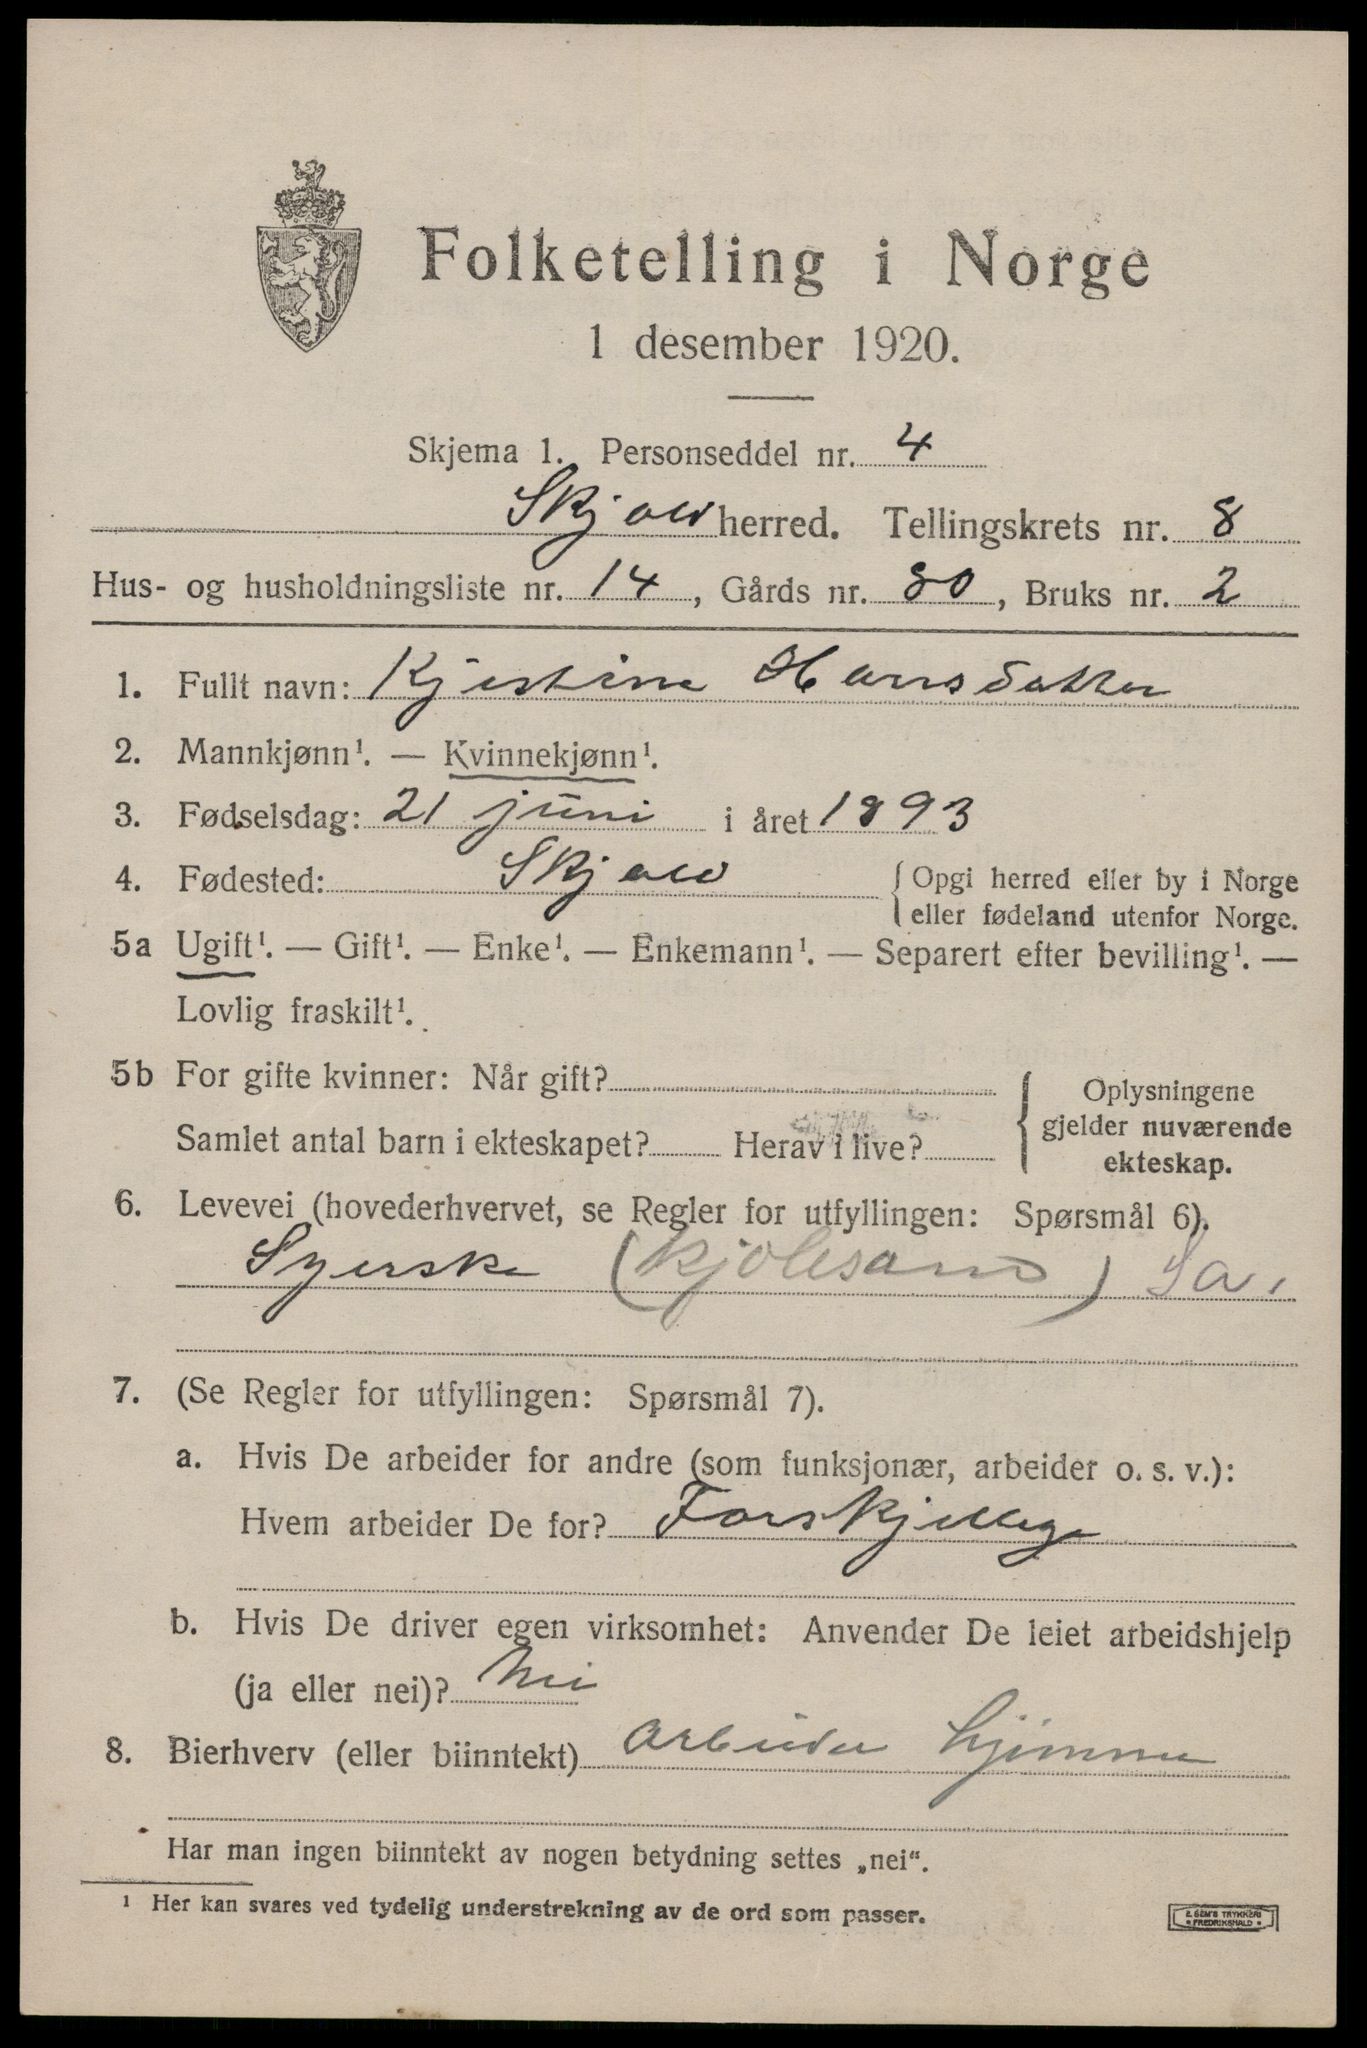 Folketelling i Norge
1 desember 1920.
Skjema 1. Personseddel nr. 4
Skjold herred. Tellingskrets nr. 8
Hus- og husholdningsliste nr. 14, Gårds nr. 80, Bruks nr. 2
1. Fullt navn: Kjistine Hansdatter
2. Mannkjønn¹. — Kvinnekjønn¹.
3. Fødselsdag: 21 juni i året 1893
4. Fødested: Skjold { Opgi herred eller by i Norge
eller fødeland utenfor Norge.
5a Ugift¹. — Gift¹. — Enke¹. — Enkemann¹. — Separert efter bevilling¹. —
Lovlig fraskilt¹.
5b For gifte kvinner: Når gift?
Samlet antal barn i ekteskapet? Herav i live?
{ Oplysningene
gjelder nuværende
ekteskap.
6. Levevei (hovederhvervet, se Regler for utfyllingen: Spørsmål 6).
Syerske (Kjolesøm) Sa.
7. (Se Regler for utfyllingen: Spørsmål 7).
a. Hvis De arbeider for andre (som funksjonær, arbeider o. s. v.):
Hvem arbeider De for? Forskjellege
b. Hvis De driver egen virksomhet: Anvender De leiet arbeidshjelp
(ja eller nei)? Nei
8. Bierhverv (eller biinntekt) Arbeider hjemme
Har man ingen biinntekt av nogen betydning settes „nei“.
1 Her kan svares ved tydelig understrekning av de ord som passer.
E. SEM'S TRYKKERI
• FREDRIKSHALD •